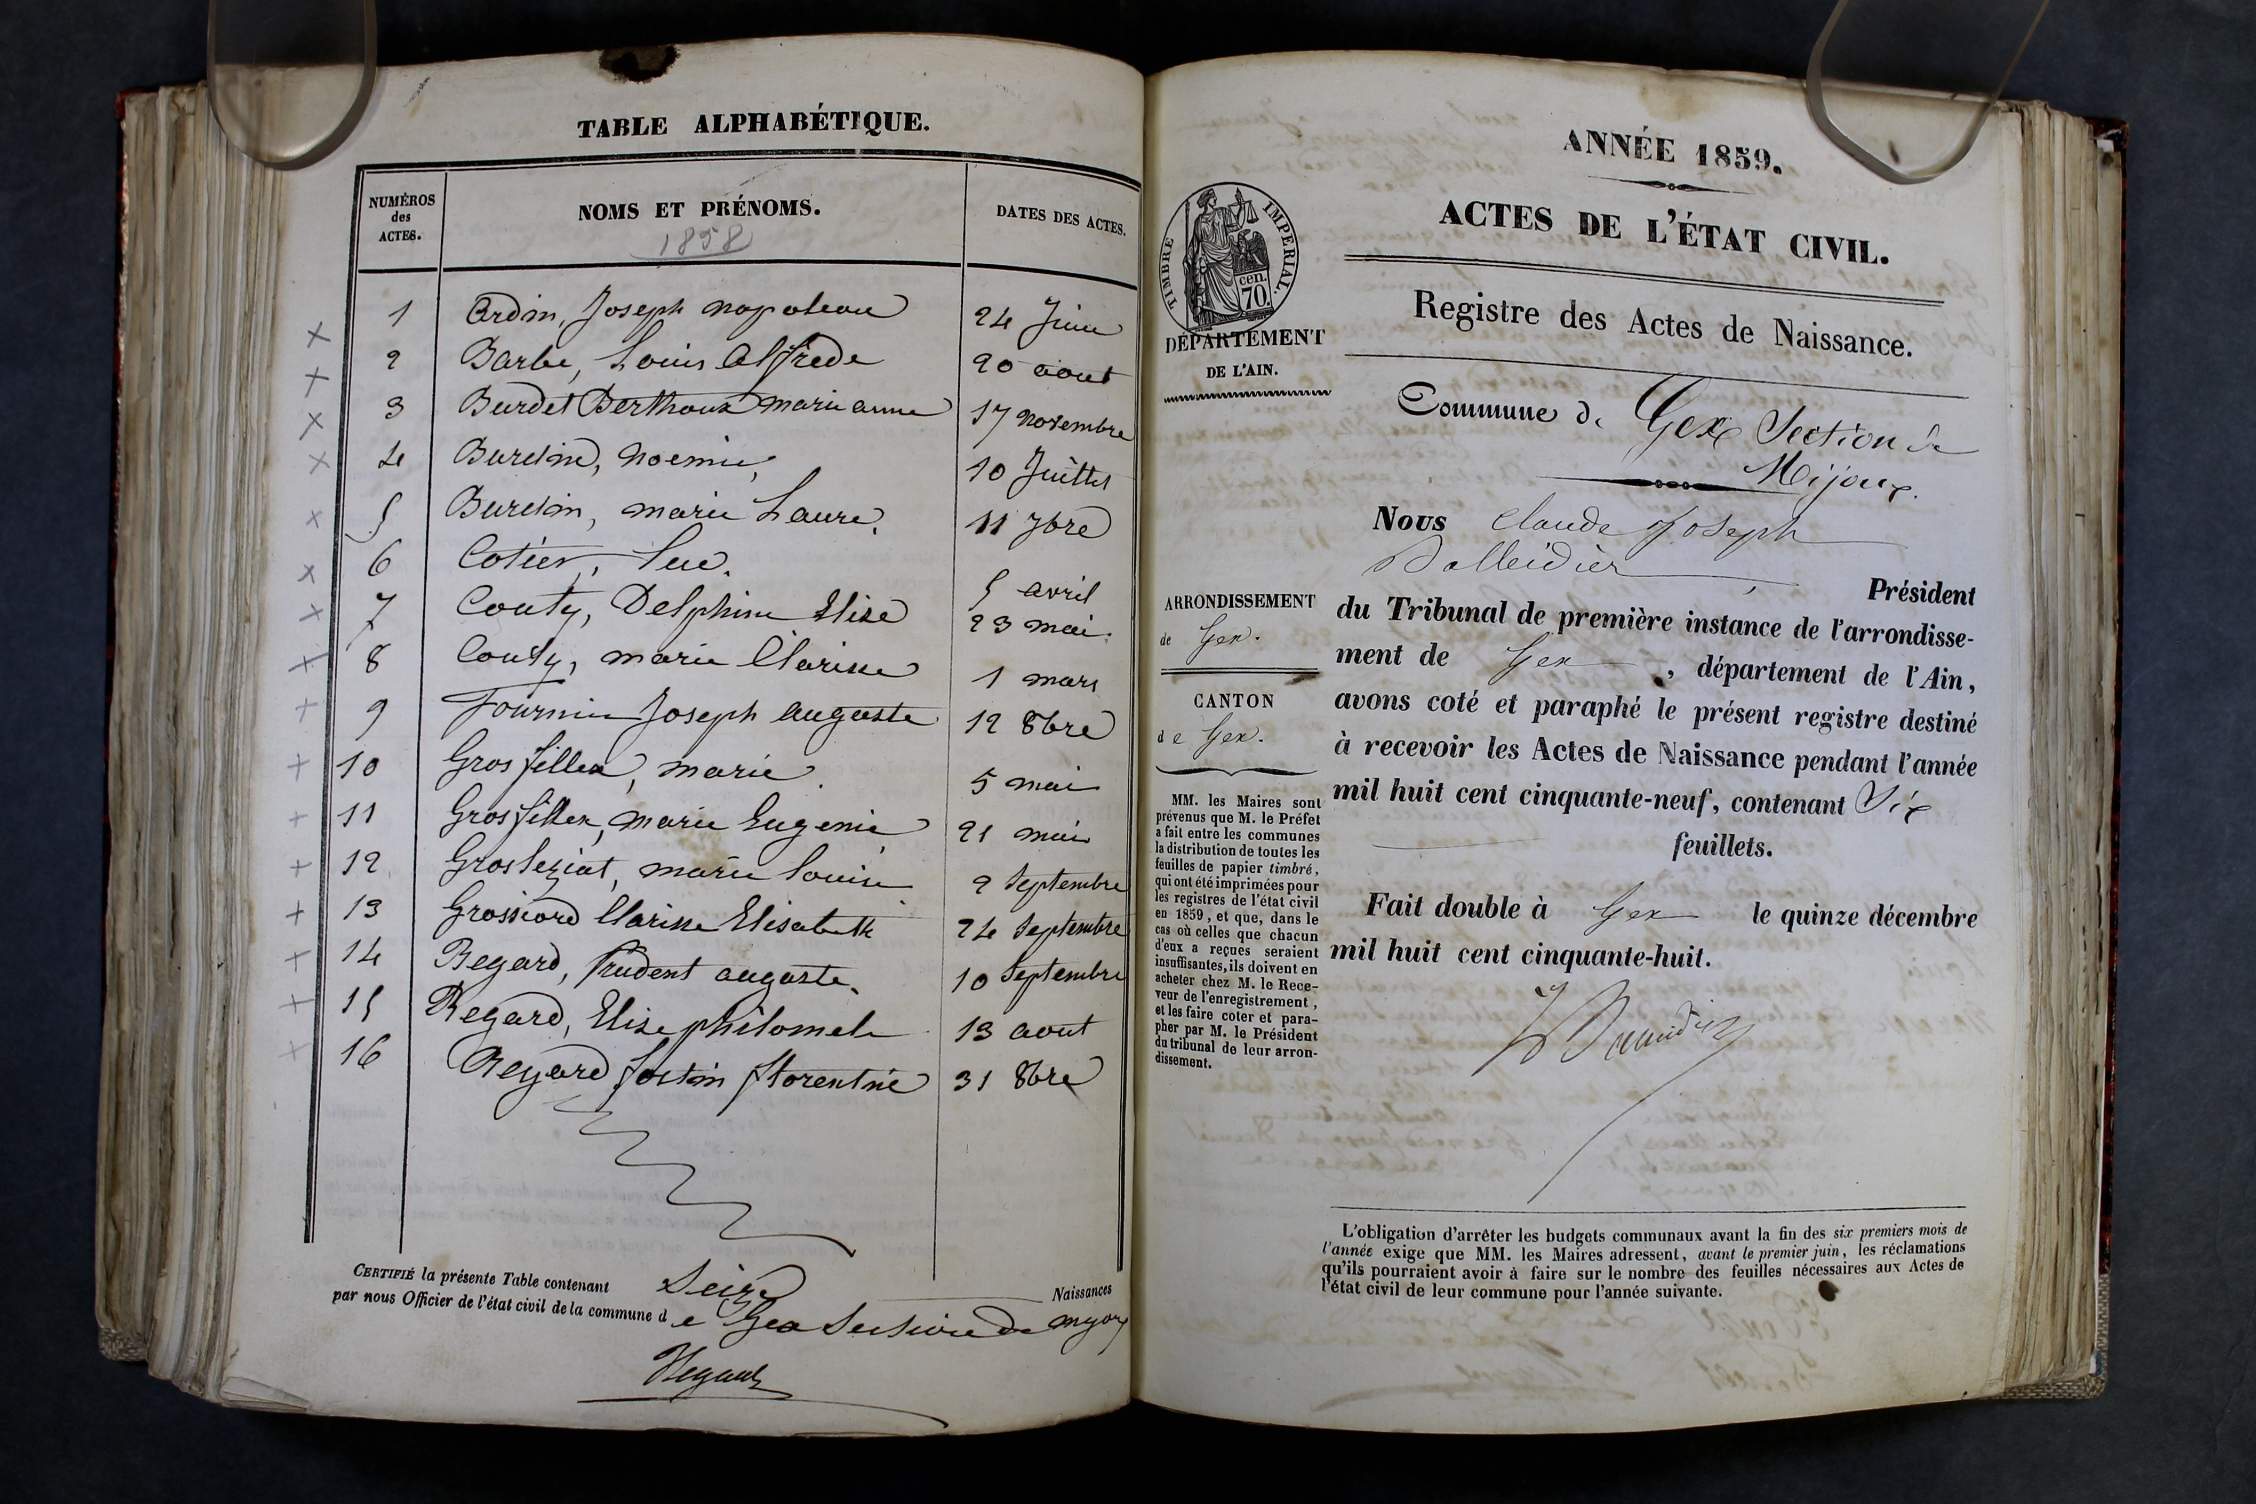 TABLE ALPHABÉTIQUE.
NUMÉROS des ACTES.
NOMS ET PRÉNOMS.
1858
DATES DES ACTES.
1 Ardin, Joseph napoleon 24 Juin
2 Barbe, Louis Alfrede 20 aout
3 Burdet Berthoux marie anne 17 novembre
4 Burdin, noemie, 10 Juillet
5 Burdin, marie Laure. 11 7bre
6 Cotier, Luc. 5 avril
7 Couty, Delphine Elise 23 mai.
8 Couty, marie Clarisse 1 mars
9 Fournier Joseph auguste 12 8bre
10 Grosfillex, marie 5 mai
11 Grosfillex, marie Eugenie 21 mai
12 Gros leziat, marie louise 2 Septembre
13 Grossiord Clarisse Elisabeth 24 Septembre
14 Regard, Prudent auguste. 10 Septembre
15 Regard, Elise philomele 13 aout
16 Regard Justin florentin 31 8bre
CERTIFIÉ la présente Table contenant Seize Naissances
par nous Officier de l'état civil de la commune de Gex Section de myoux
Regard
ANNÉE 1859.
ACTES DE L'ÉTAT CIVIL.
Registre des Actes de Naissance.
TIMBRE IMPERIAL.
cen.
70.
DÉPARTEMENT
DE L'AIN.
Commune de Gex Section de
Mijoux.
ARRONDISSEMENT
de Gex.
CANTON
de Gex.
MM. les Maires sont
prévenus que M. le Préfet
a fait entre les communes
la distribution de toutes les
feuilles de papier timbré,
qui ont été imprimées pour
les registres de l'état civil
en 1859, et que, dans le
cas où celles que chacun
d'eux a reçues seraient
insuffisantes, ils doivent en
acheter chez M. le Rece-
veur de l'enregistrement,
et les faire coter et para-
pher par M. le Président
du tribunal de leur arron-
dissement.
Nous Claude Joseph
Président
du Tribunal de première instance de l'arrondisse-
ment de Gex, département de l'Ain,
avons coté et paraphé le présent registre destiné
à recevoir les Actes de Naissance pendant l'année
mil huit cent cinquante-neuf, contenant Six
feuillets.
Fait double à Gex le quinze décembre
mil huit cent cinquante-huit.
L'obligation d'arrêter les budgets communaux avant la fin des six premiers mois de
l'année exige que MM. les Maires adressent, avant le premier juin, les réclamations
qu'ils pourraient avoir à faire sur le nombre des feuilles nécessaires aux Actes de
l'état civil de leur commune pour l'année suivante.